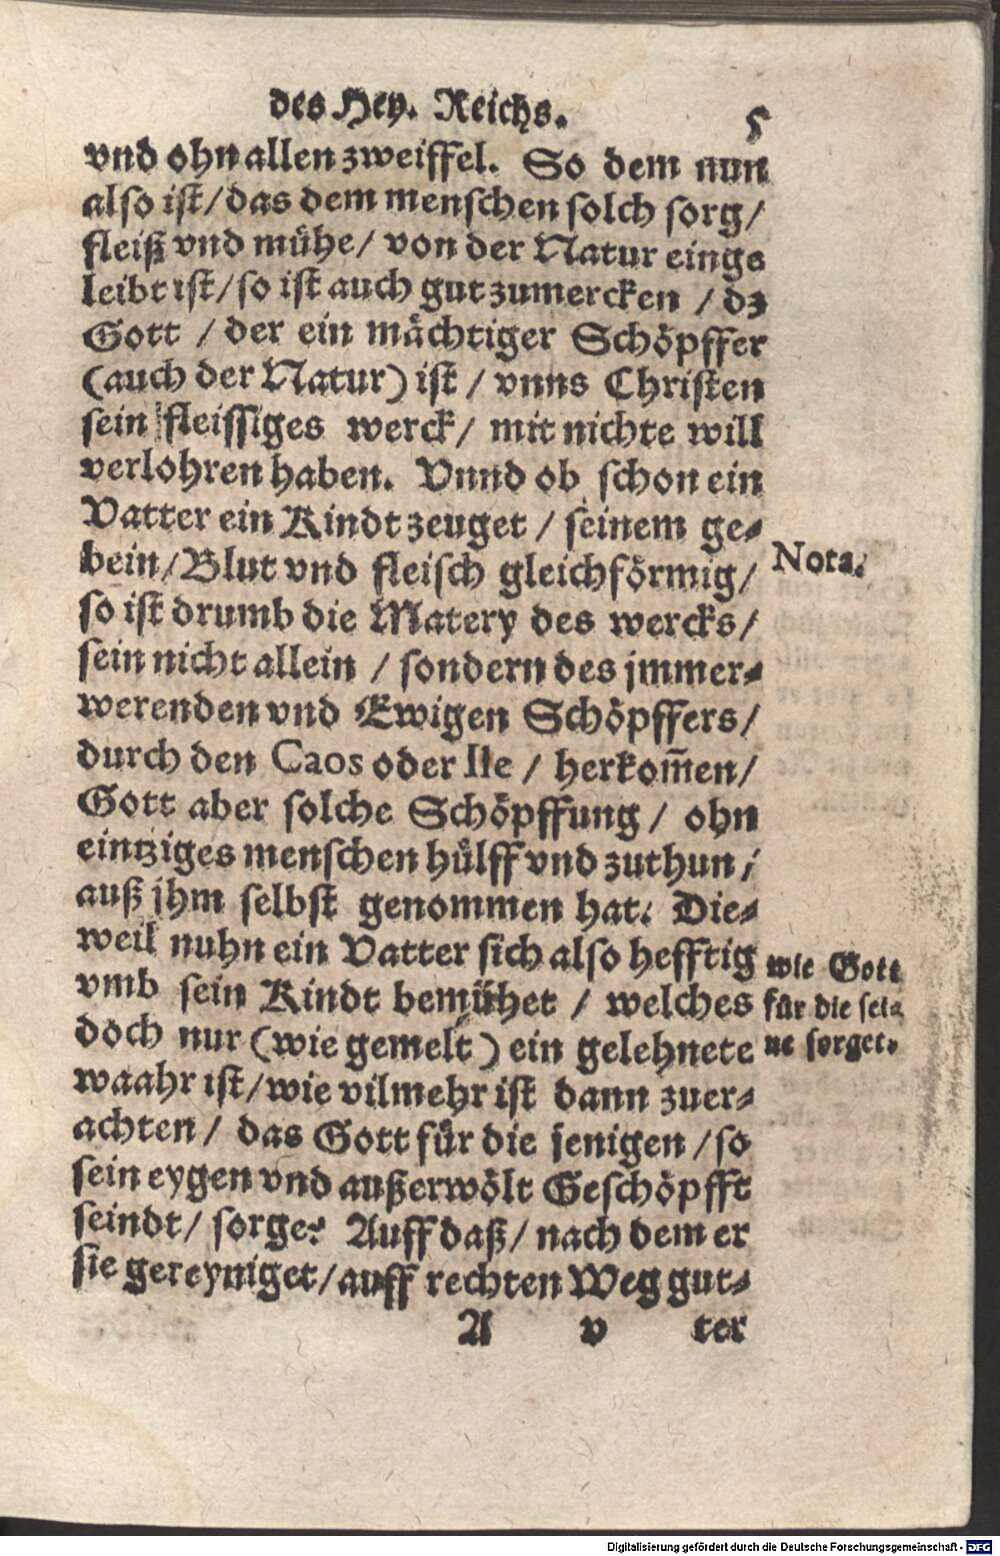 des Hey. Reichs.
5
vnd ohn allen zweiffel. So dem nun
also ist/das dem menschen solch sorg/
fleiß vnd mühe/ von der Natur einge
leibt ist/so ist auch gut zumercken / dz
Gott / der ein mächtiger Schöpffer
(auch der Natur) ist / vnns Christen
sein fleissiges werck/ mit nichte will
verlohren haben. Vnnd ob schon ein
Vatter ein Kindt zeuget / seinem ge-
bein/Blut vnd fleisch gleichförmig/
Nota.
so ist drumb die Matery des wercks/
sein nicht allein / sondern des jmmer-
werenden vnd Ewigen Schöpffers/
durch den Caos oder Ile / herkom̄en/
Gott aber solche Schöpffung / ohn
eintziges menschen hülff vnd zuthun /
auß jhm selbst genommen hat. Die-
weil nuhn ein Vatter sich also hefftig
vmb sein Kindt bemühet / welches
doch nur (wie gemelt) ein gelehnete
wie Gott
für die sei-
ne sorget.
waahr ist/wie vilmehr ist dann zuer-
achten / das Gott für die jenigen /so
sein eygen vnd außerwölt Geschöpfft
seindt/ sorge? Auff daß/ nach dem er
sie gereyniget/auff rechten Weg gut-
A v ter
Digitalisierung gefördert durch die Deutsche Forschungsgemeinschaft - DFG